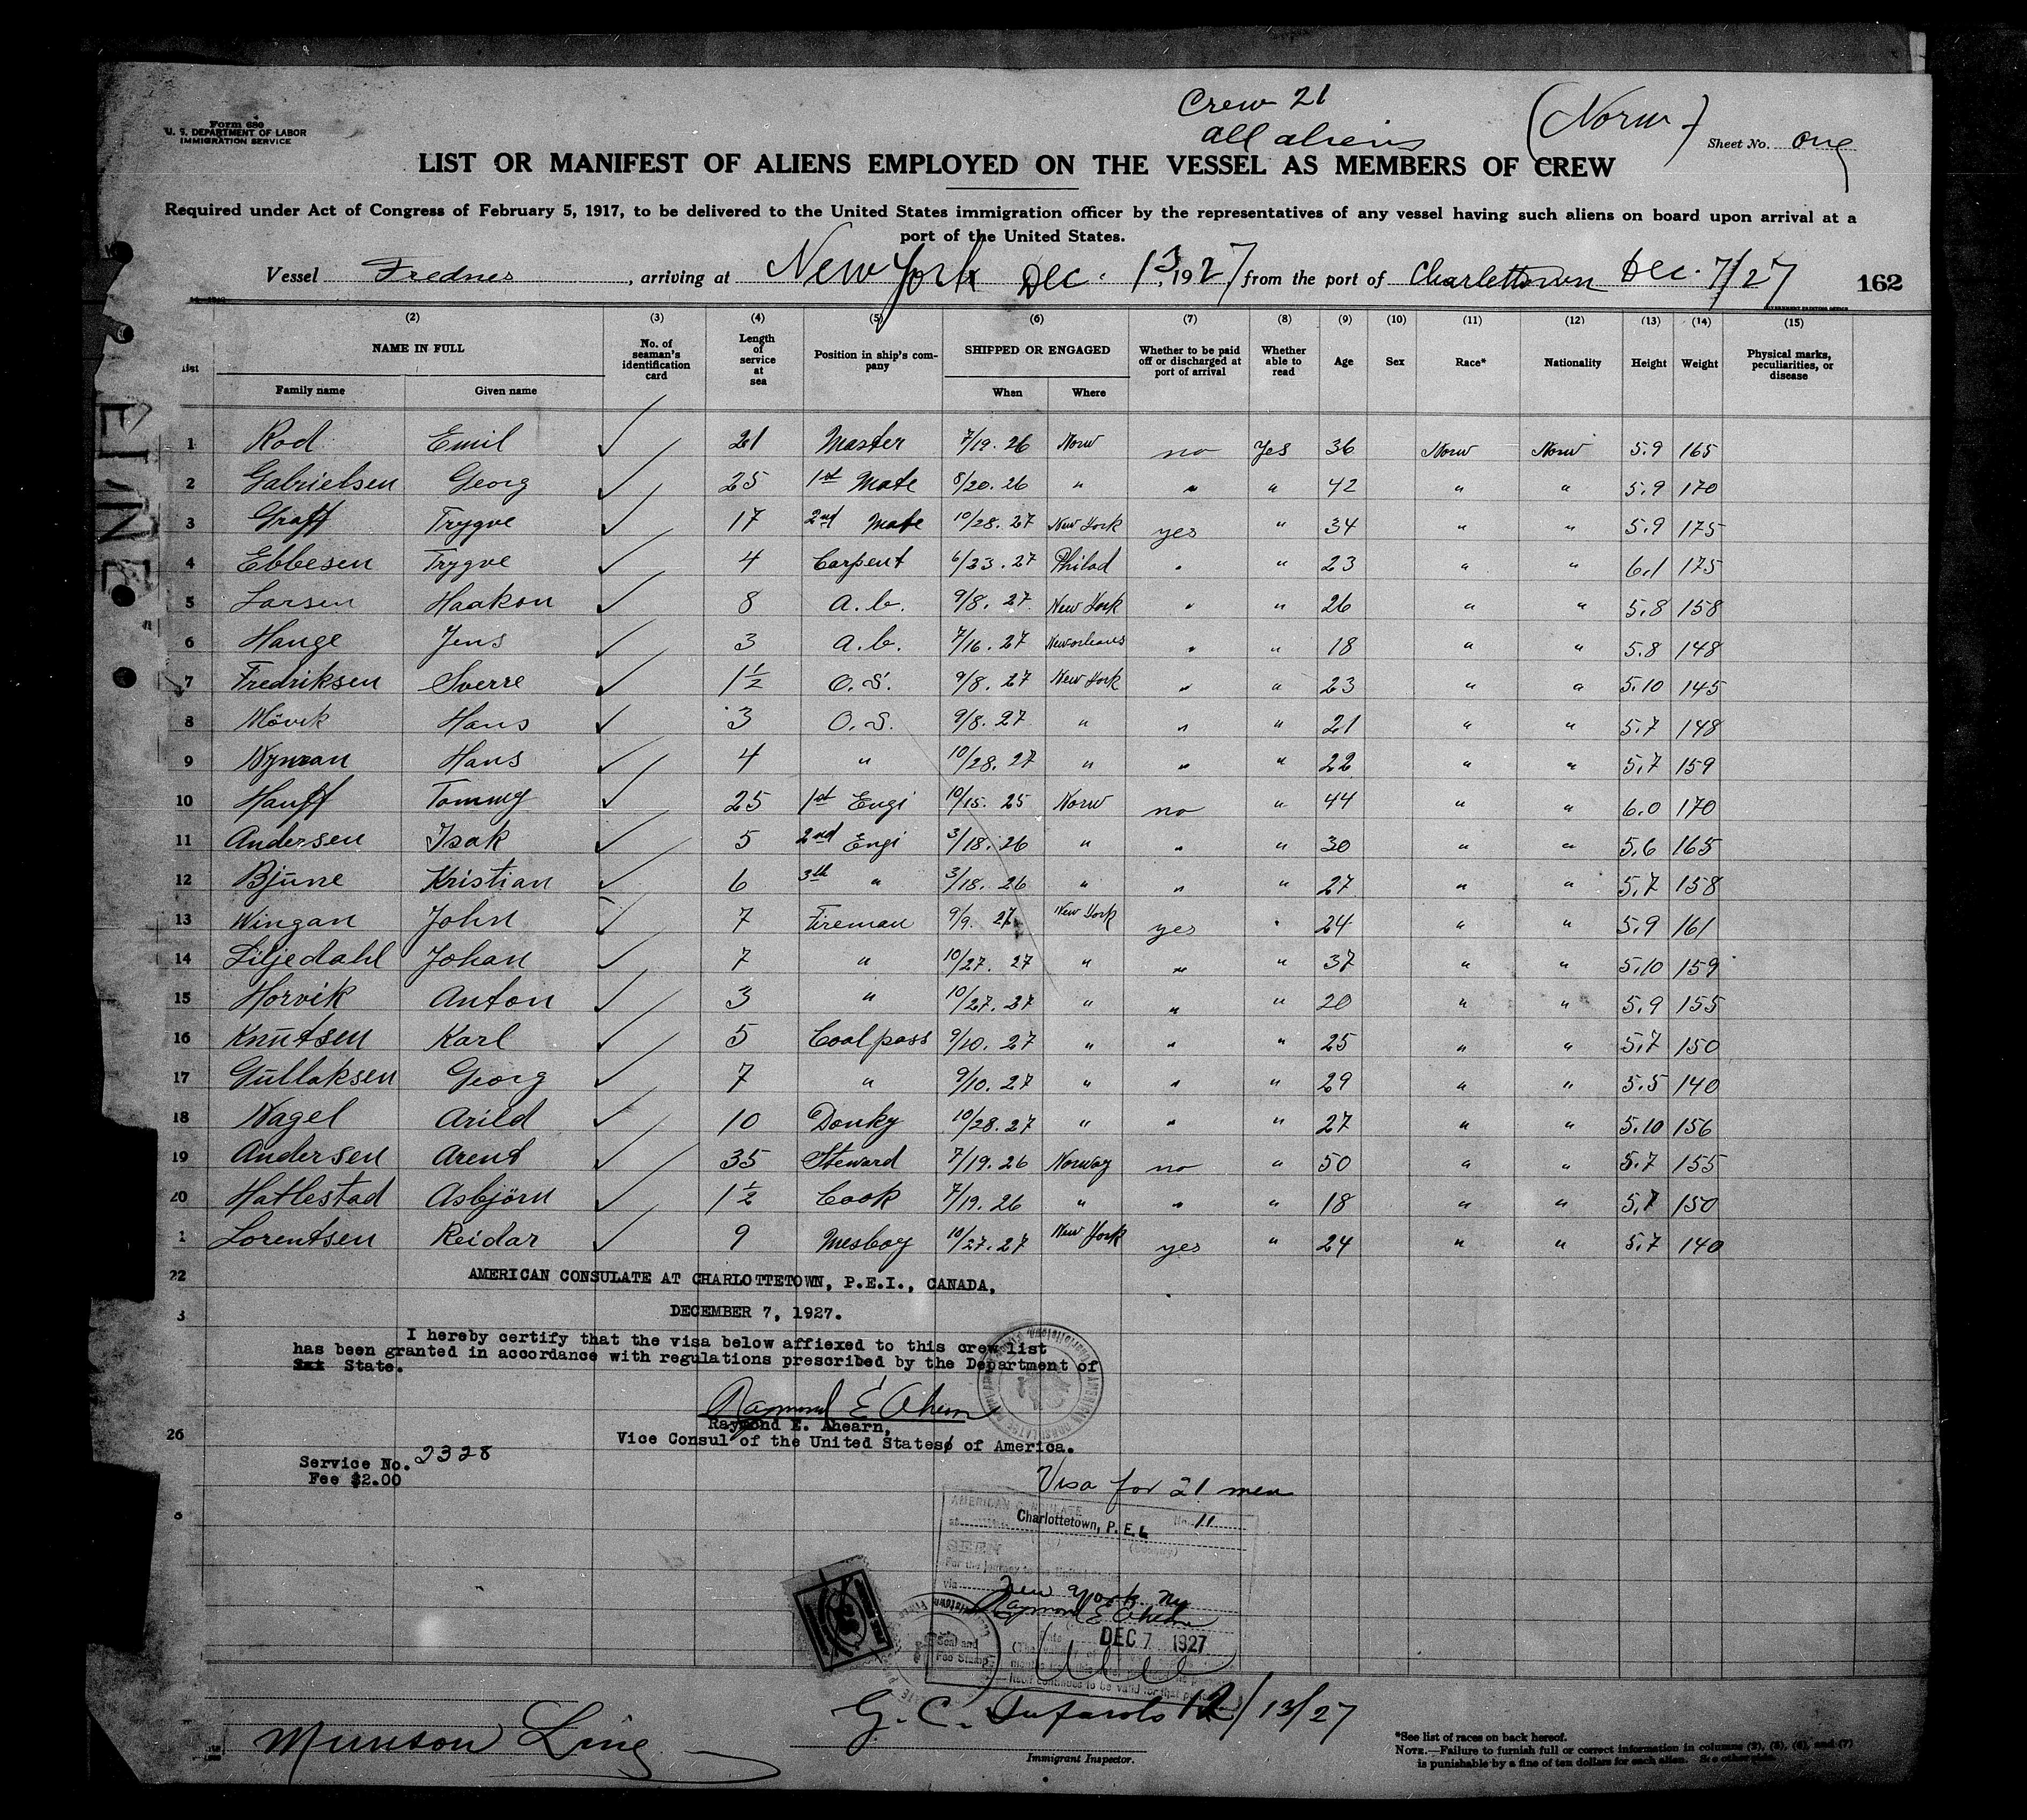 Crew 21
all aliens
(Norw)
Form 680
U. S. DEPARTMENT OF LABOR
IMMIGRATION SERVICE
Sheet No. One
LIST OR MANIFEST OF ALIENS EMPLOYED ON THE VESSEL AS MEMBERS OF CREW
Required under Act of Congress of February 5, 1917, to be delivered to the United States immigration officer by the representatives of any vessel having such aliens on board upon arrival at a
port of the United States.
Vessel Frednes, arriving at New York Dec. 13, 1927 from the port of Charlettown Dec. 7/27 162
(2) (3) (4) (5) (6) (7) (8) (9) (10) (11) (12) (13) (14) (15)
List NAME IN FULL No. of seaman's identification card Length of service at sea Position in ship's company SHIPPED OR ENGAGED Whether to be paid off or discharged at port of arrival Whether able to read Age Sex Race* Nationality Height Weight Physical marks, peculiarities, or disease
Family name Given name When Where
1 Rod Emil ✓ 21 Master 7/19. 26 Norw no Yes 36 Norw Norw 5.9 165
2 Gabrielsen Georg ✓ 25 1st Mate 8/20. 26 " " " 42 " " 5.9 170
3 Graff Trygve ✓ 17 2nd Mate 10/28. 27 New York yes " 34 " " 5.9 175
4 Ebbesen Trygve ✓ 4 Carpent 6/23. 27 Philad " " 23 " " 6.1 175
5 Larsen Haakon ✓ 8 a.b. 9/8. 27 New York " " 26 " " 5.8 158
6 Hauge Jens ✓ 3 a.b. 7/16. 27 New orleans " " 18 " " 5.8 148
7 Fredriksen Sverre ✓ 1 1/2 O.S. 9/8. 27 New York " " 23 " " 5.10 145
8 Mövik Hans ✓ 3 O.S. 9/8. 27 " " " 21 " " 5.7 148
9 Nyman Hans ✓ 4 " 10/28. 27 " " " 22 " " 5.7 159
10 Hauff Tommy ✓ 25 1st Engi 10/15. 25 Norw no " 44 " " 6.0 170
11 Andersen Isak ✓ 5 2nd Engi 3/18. 26 " " " 30 " " 5.6 165
12 Bjune Kristian ✓ 6 3th " 3/18. 26 " " " 27 " " 5.7 158
13 Wingan John ✓ 7 Fireman 9/9. 27 New York yes " 24 " " 5.9 161
14 Liljedahl Johan ✓ 7 " 10/27. 27 " " " 37 " " 5.10 159
15 Horvik Anton ✓ 3 " 10/27. 27 " " " 20 " " 5.9 155
16 Knutsen Karl ✓ 5 Coal pass 9/10. 27 " " " 25 " " 5.7 150
17 Gullaksen Georg ✓ 7 " 9/10. 27 " " " 29 " " 5.5 140
18 Nagel Arild ✓ 10 Donky 10/28. 27 " " " 27 " " 5.10 156
19 Andersen Arent ✓ 35 Steward 7/19. 26 Norway no " 50 " " 5.7 155
20 Hatlestad Asbjörn ✓ 1 1/2 Cook 7/19. 26 " " " 18 " " 5.7 150
1 Lorentsen Reidar ✓ 9 Mesboy 10/27. 27 New York yes " 24 " " 5.7 140
22 AMERICAN CONSULATE AT CHARLOTTETOWN, P.E.I., CANADA,
3 DECEMBER 7, 1927.
I hereby certify that the visa below affiexed to this crew list
has been granted in accordance with regulations prescribed by the Department of
State.
Raymond E Ahearn
Raymond E. Ahearn,
26 Vice Consul of the United States of America.
Service No. 2328
Fee $2.00
Visa for 21 men
AMERICAN CONSULATE
No. 11
Charlottetown, P.E.I.
For the journey to the United States
via
New York NY
Raymond E Ahearn
DEC 7 1927
Seal and
Fee Stamp
G. C. 12/13/27
Immigrant Inspector.
Munson Line
*See list of races on back hereof.
NOTE.—Failure to furnish full or correct information in columns (2), (5), (6), and (7)
is punishable by a fine of ten dollars for each alien. See other side.